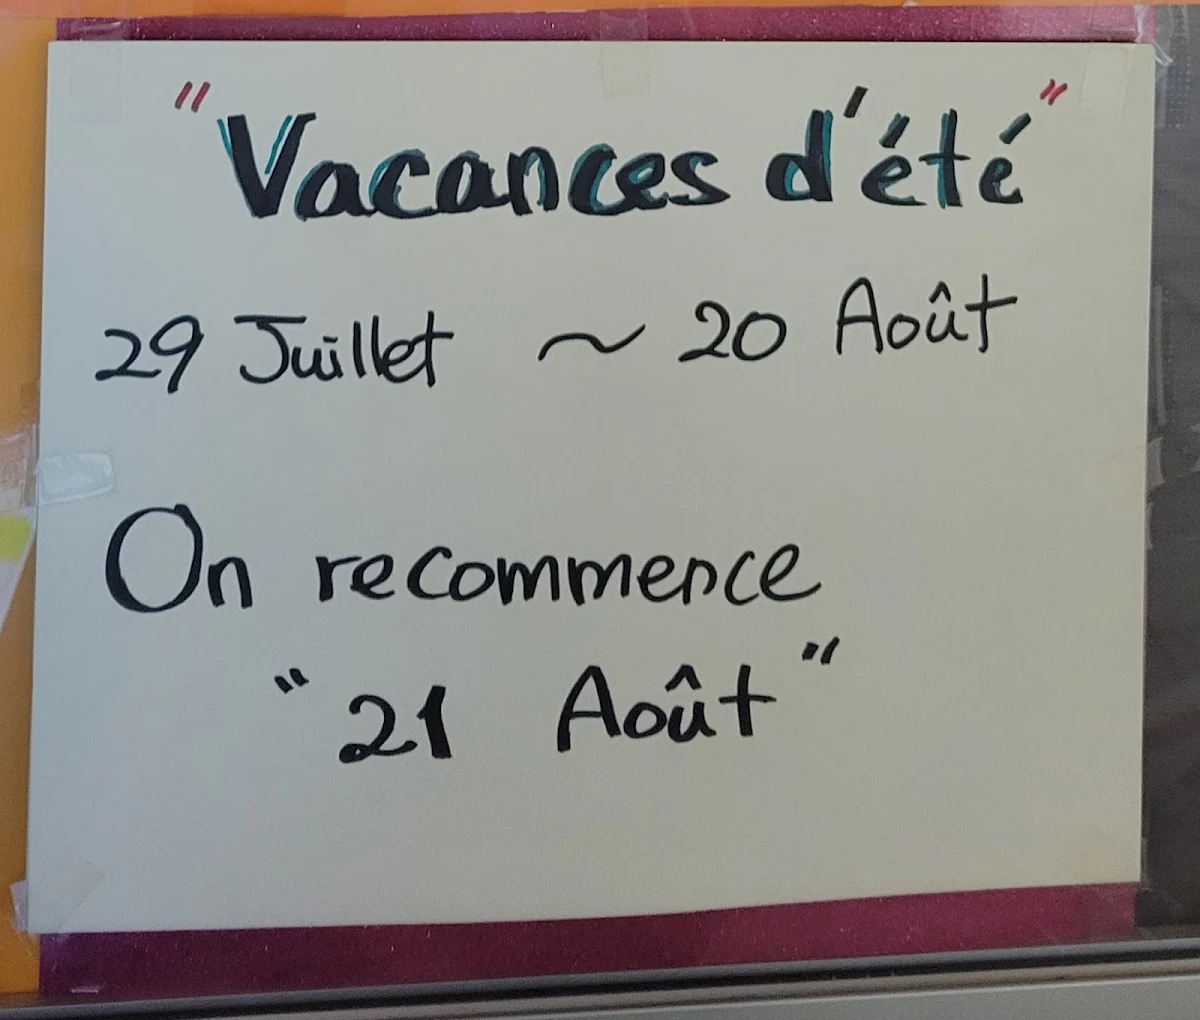 "Vacances d'été"
29 Juillet ~ 20 Août
On recommence
"21 Août"